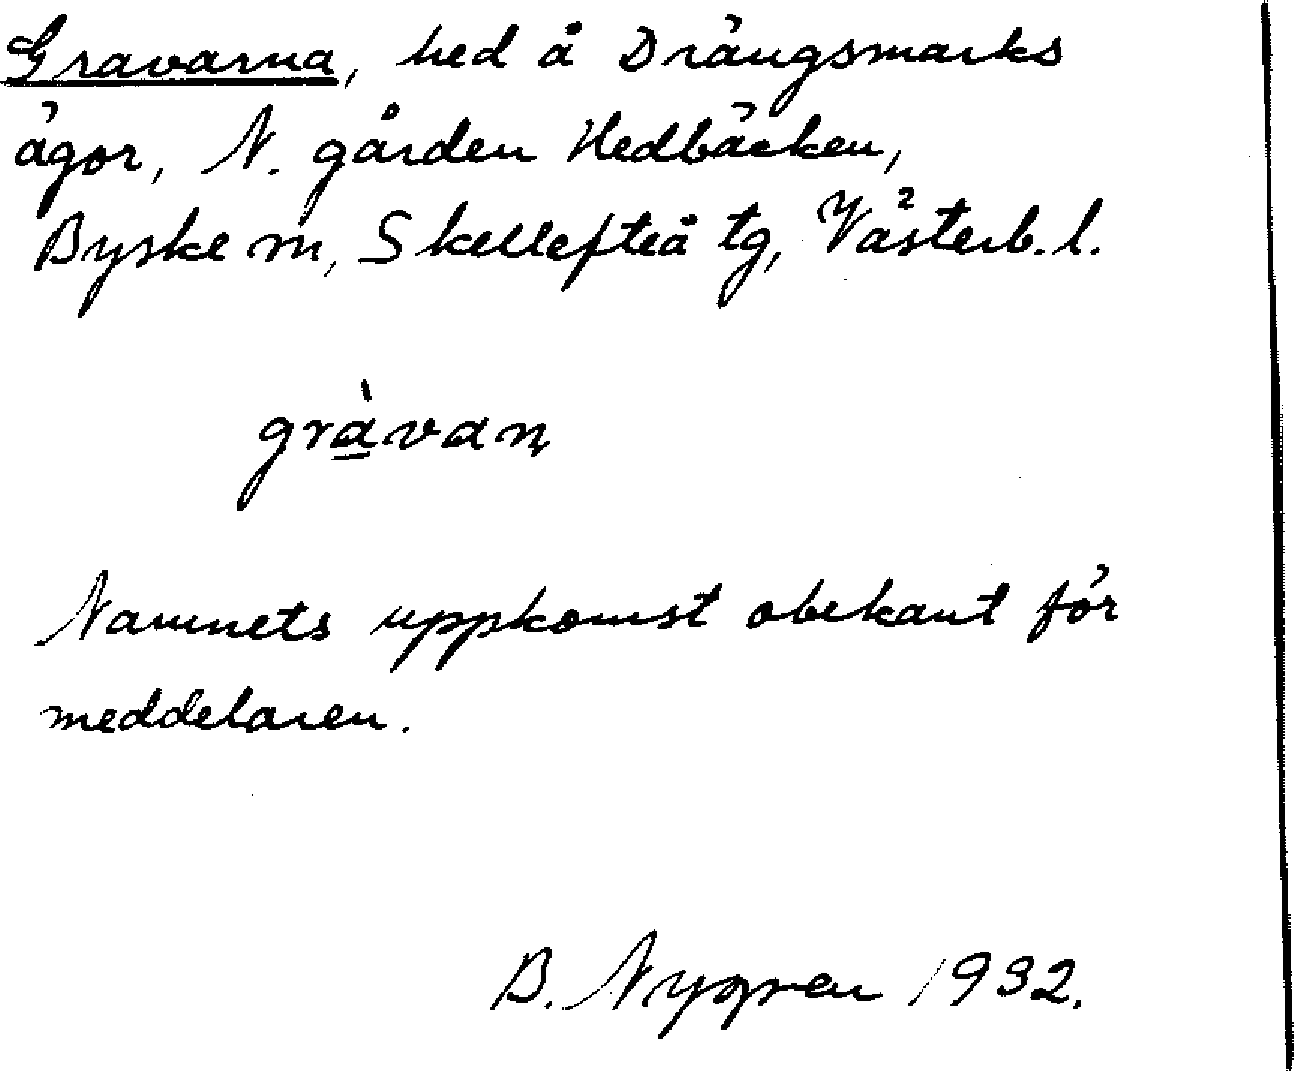 Gravarna, hed å Drängsmarks
ägor, N. gården Hedbäcken,
Byske sn, Skellefteå tg, Västerb. l.
gràvaṇ
Namnets uppkomst obekant för
meddelaren.
B. Nygren 1932.